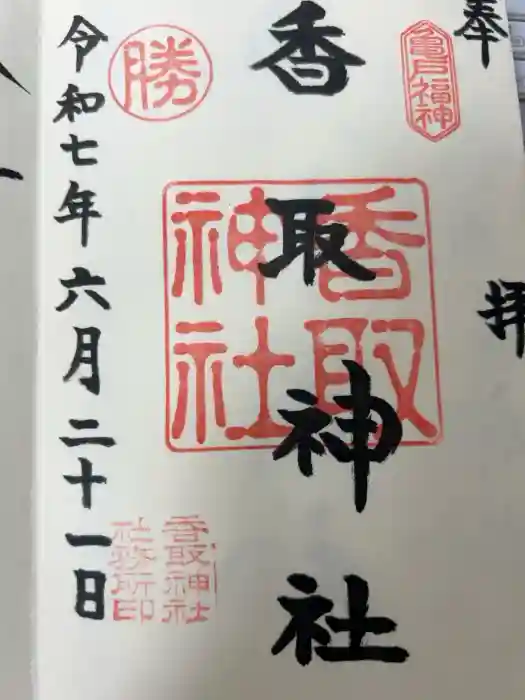 奉拝
亀戸福神
香取神社
香取神社
勝
令和七年六月二十一日
香取神社
社務所印